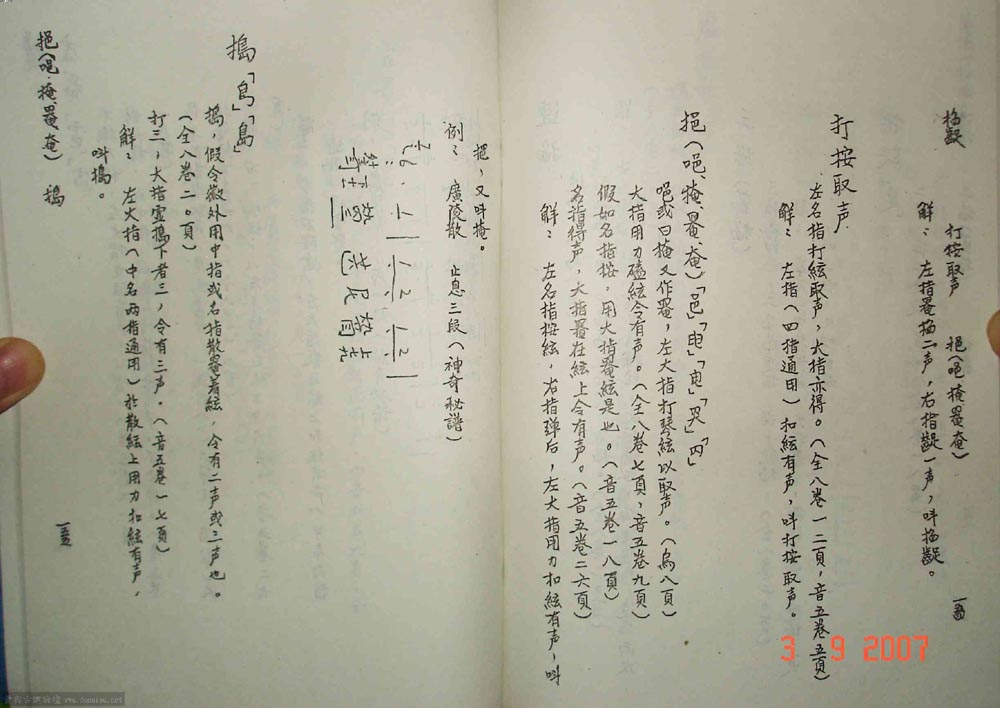 掐齪　打按取声　挹（唈掩罨庵）
解：左指罨掐二声，右指齪一声，叫掐齪。
打按取声
左名指打絃取声，大指亦得。（全八卷一二頁，音五卷五頁）
解：左指（四指通用）扣絃有声，叫打按取声。
挹（唈、掩、罨、庵）「邑」「电」
唈或曰掩又作罨，左大指打琴絃以取声。（烏八頁）
大指用力磕絃令有声。（全八卷七頁，音五卷九頁）
假如名指按，用大指罨絃是也。（音五卷一八頁）
名指得声，大指罨在絃上令有声。（音五卷二六頁）
解：左名指按絃，右指弹后，左大指用力扣絃有声，叫
挹，又叫掩。
例：廣陵散　止息三段（神奇秘譜）
搗「鳥」「島」
搗，假令徽外用中指或名指散罨着絃，令有二声或三声也。
（全八卷二〇頁）
打三，大指虚搗下者三，令有三声。（音五卷一七頁）
解：左大指（中名两指通用）於散絃上用力扣絃有声，
叫搗。
挹（唈、掩、罨、庵）　搗
3 9 2007